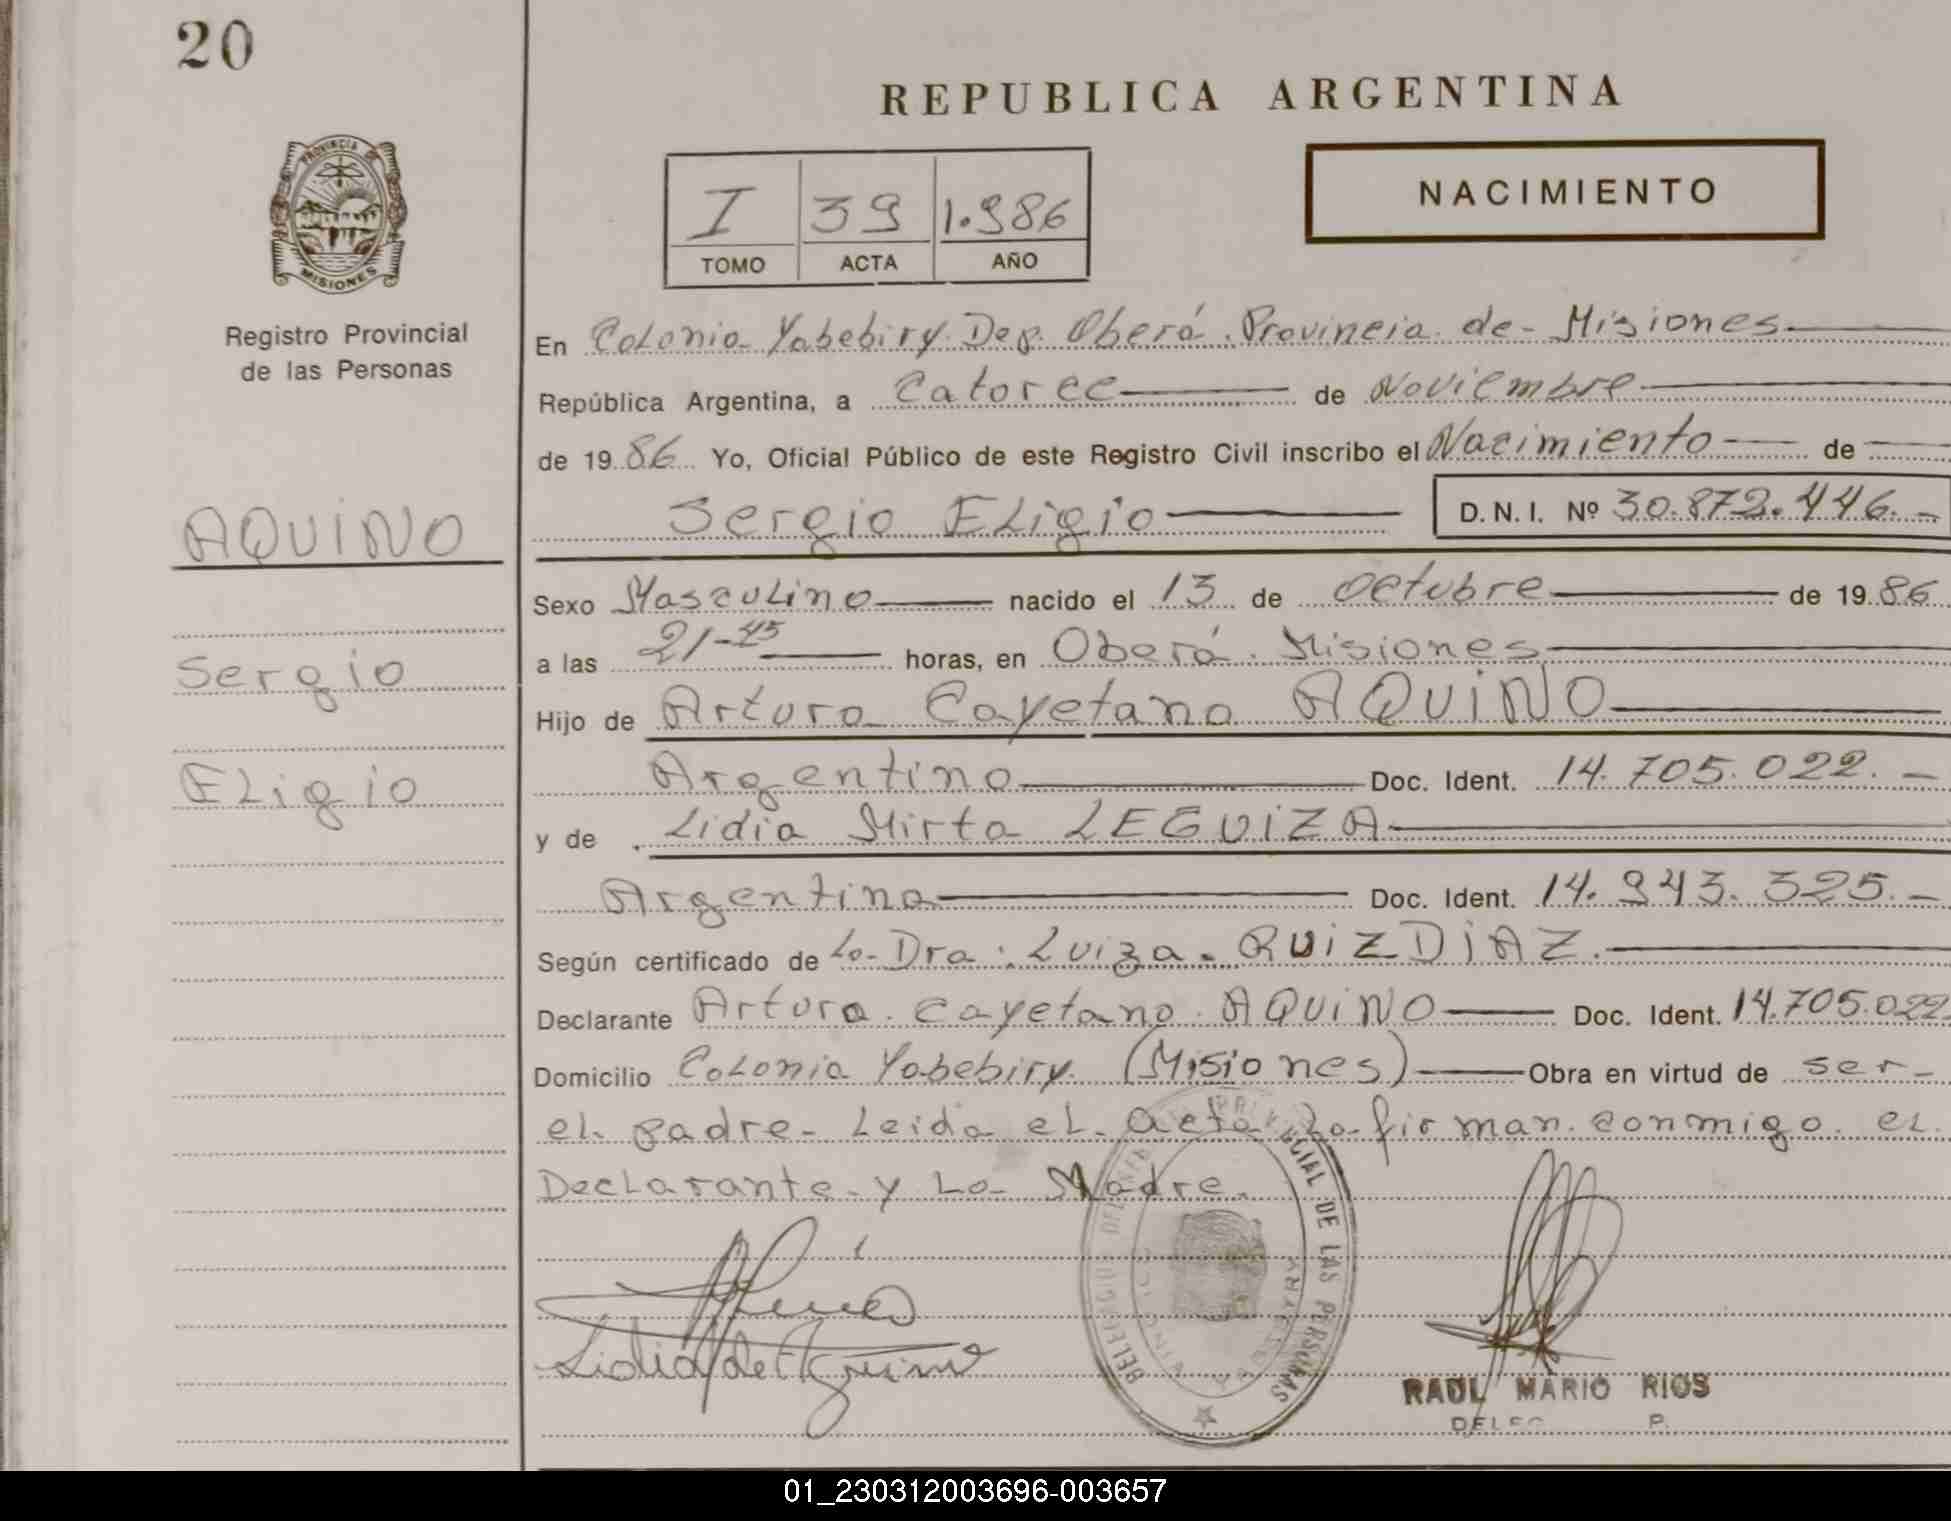 20
REPUBLICA ARGENTINA
PROVINCIA DE
MISIONES
I 39 1.986
NACIMIENTO
TOMO ACTA AÑO
Registro Provincial
de las Personas
En Colonia Yabebiry. Dep. Oberá. Provincia de Misiones
República Argentina, a Catorce de Noviembre
de 19 86 Yo, Oficial Público de este Registro Civil inscribo el Nacimiento de
Sergio Eligio D.N.I. Nº 30.872.446.-
AQUINO
Sexo Masculino nacido el 13 de Octubre de 19 86
a las 21-45 horas, en Oberá. Misiones
Sergio
Hijo de Arturo Cayetano AQUINO
Argentino Doc. Ident. 14.705.022.-
Eligio
y de Lidia Mirta LEGUIZA
Argentina Doc. Ident. 14.943.325.-
Según certificado de La Dra. Luiza RUIZ DIAZ.
Declarante Arturo Cayetano AQUINO Doc. Ident. 14.705.022
Domicilio Colonia Yabebiry (Misiones) Obra en virtud de ser
el padre. Leida el acta la firman conmigo el
Declarante y La Madre.
Lidia de Aquino
CIAL DE LAS PERSONAS
RAUL MARIO RIOS
01_230312003696-003657